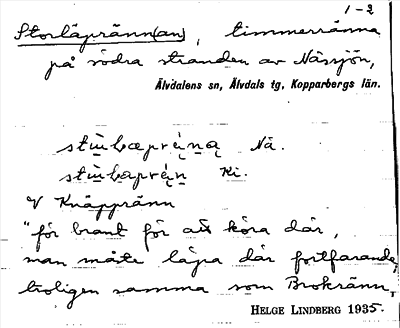 1-2
Storläpränn(an), timmerränna
på södra stranden av Nässjön,
Älvdalens sn, Älvdals tg, Kopparbergs län.
Nä.
Ki.
V Knäppränn
"för brant för att köra där,
man måste läpa där fortfarande,
troligen samma som Brokränn,
HELGE LINDBERG 1935.